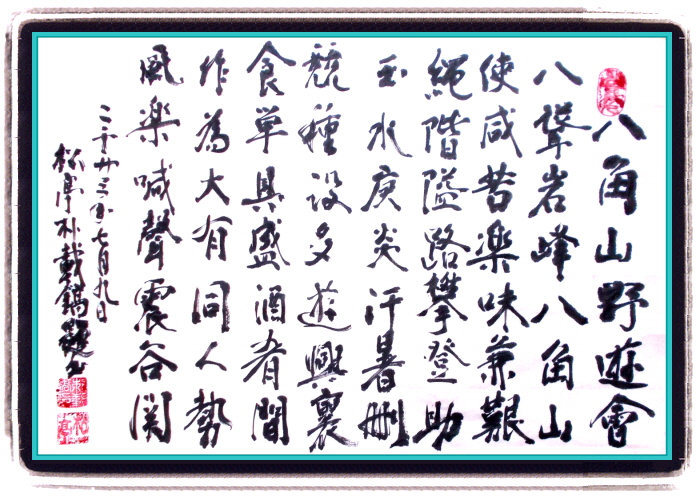 八角山野遊會
八聳岩峰八角山
使咸苦楽味兼艱
縄階隘路攀登助
玉水庚炎汗暑刪
競種設多遊興裏
食単具盛酒肴間
作為大有同人勢
風楽喊聲震谷関
二千卄三年七月九日
松亭朴載鎬